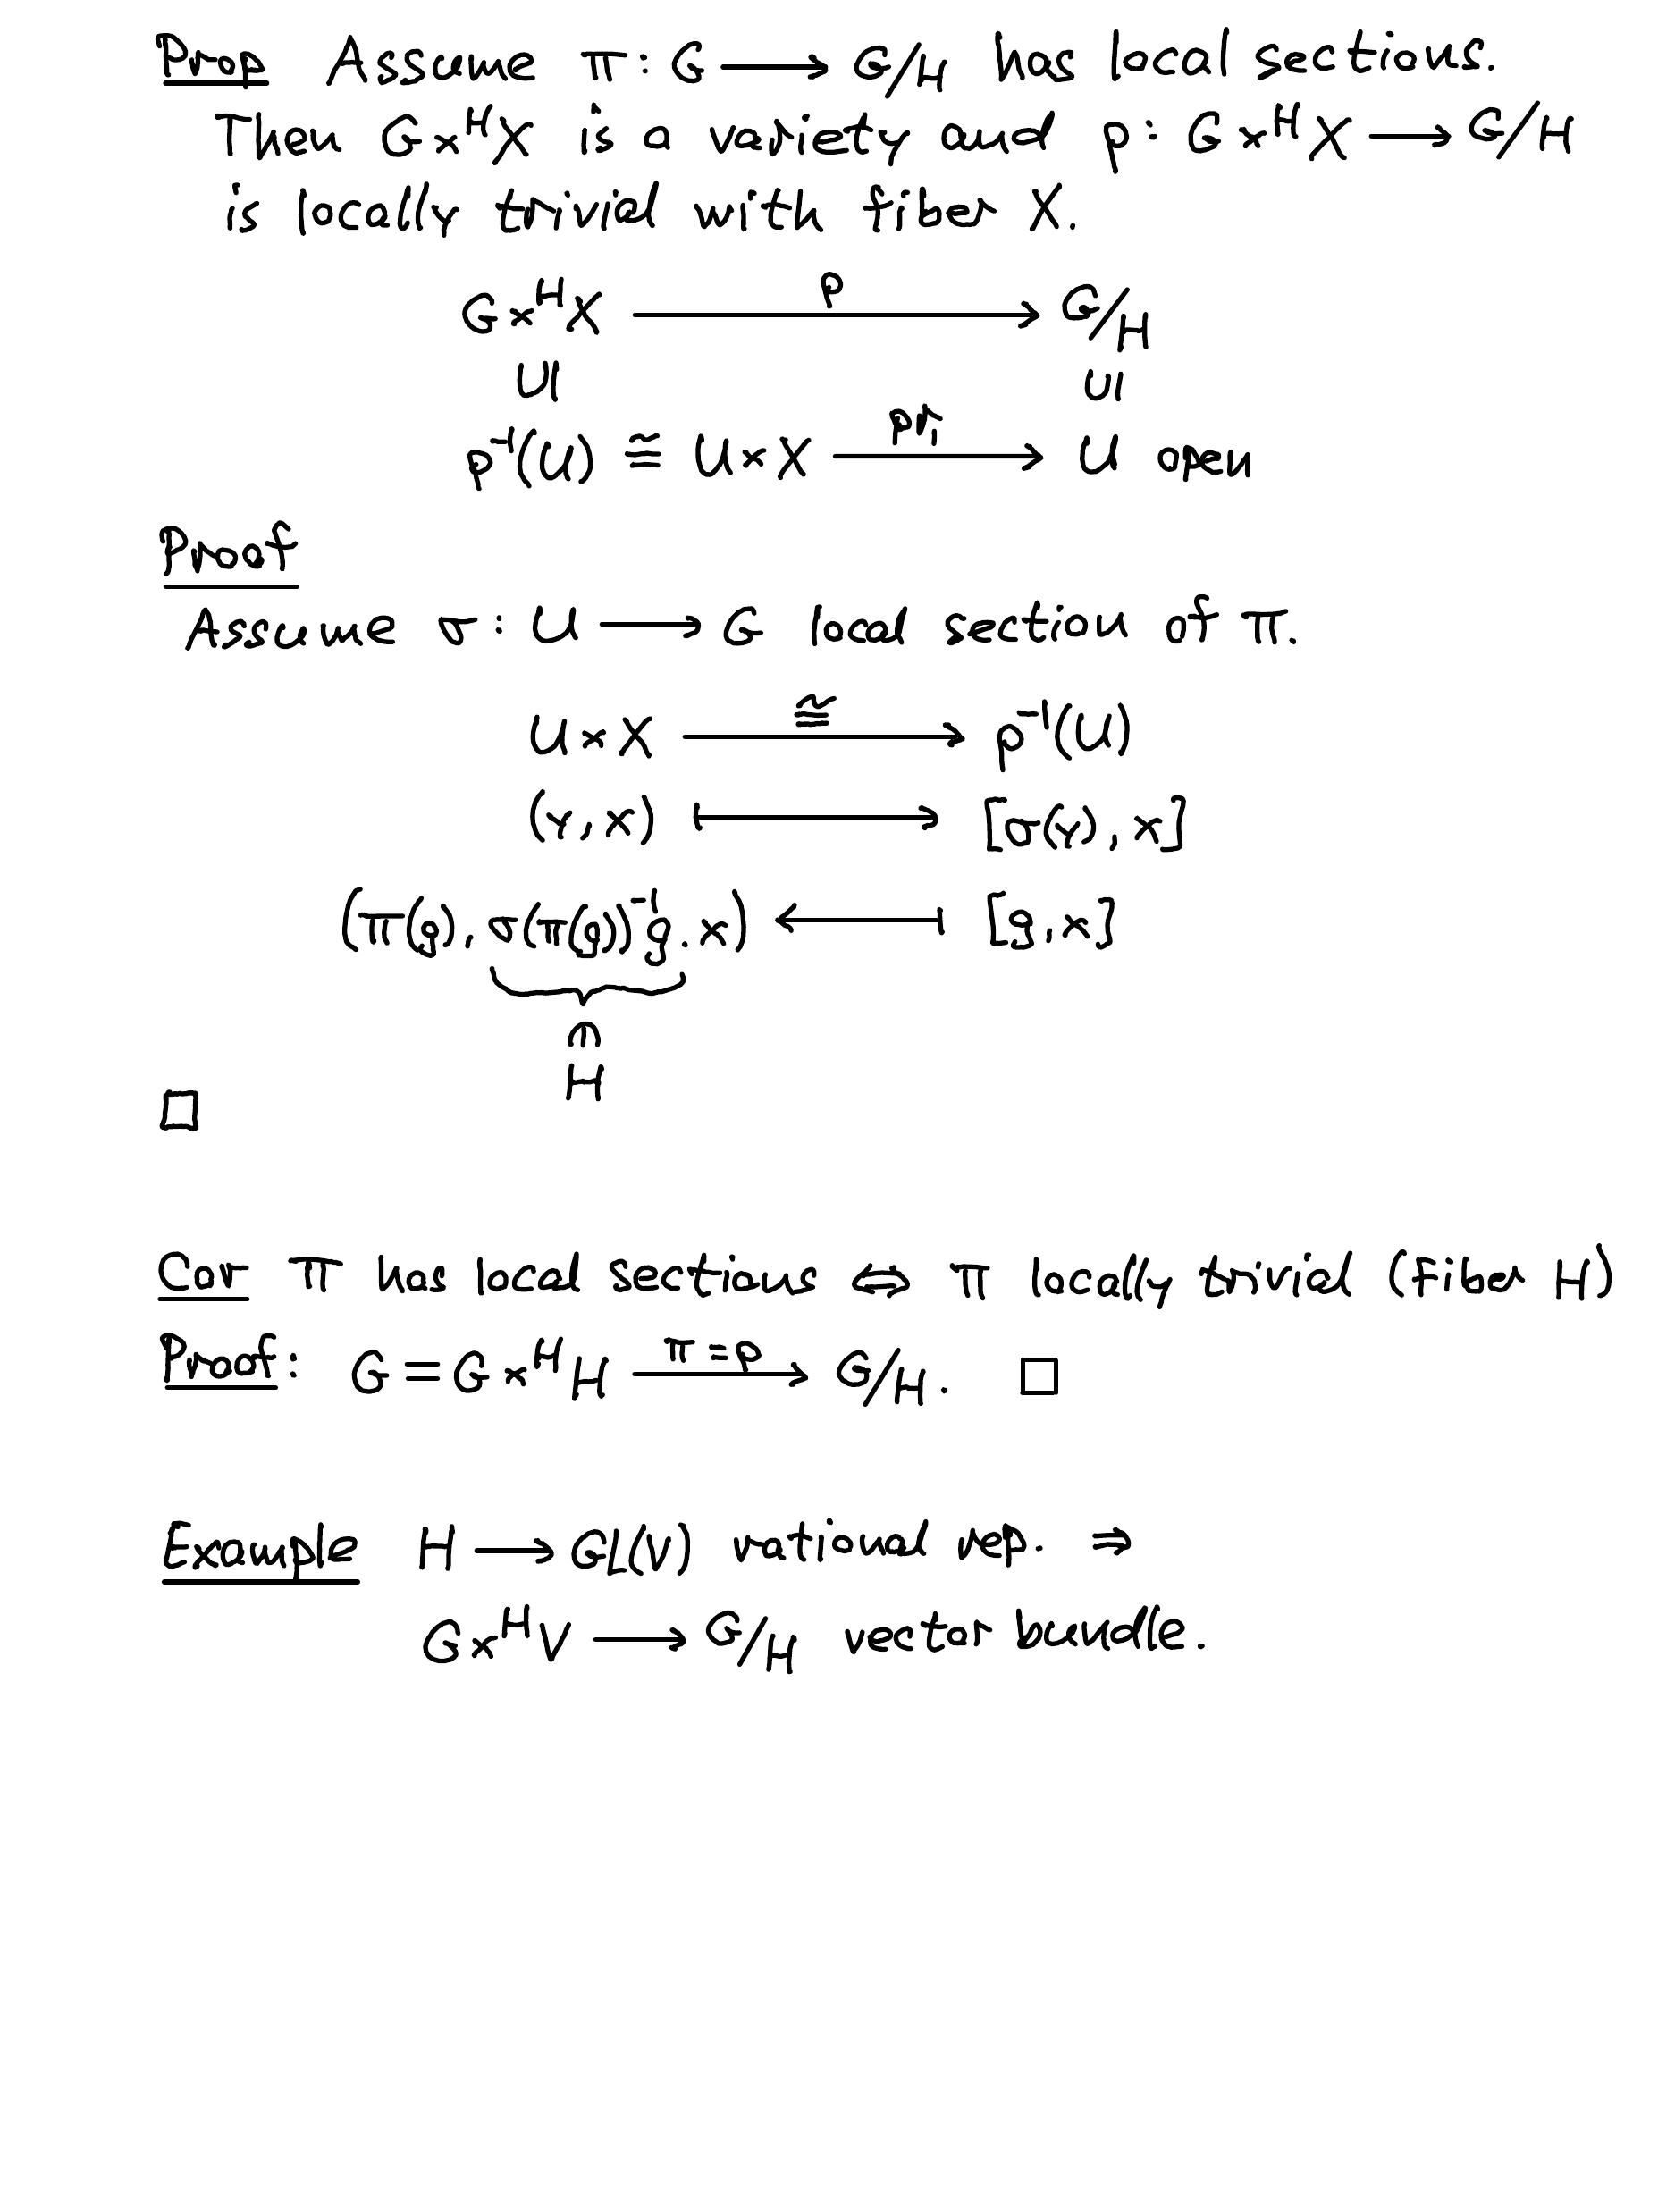 Prop Assume π: G ⟶ G/H has local sections.
Then G×ᴴX is a variety and p: G×ᴴX ⟶ G/H
is locally trivial with fiber X.
G×ᴴX ⟶ᵖ G/H
U| U|
p⁻¹(U) ≅ U×X ⟶ pr₁ U open
Proof
Assume σ: U ⟶ G local section of π.
U×X ⟶ ≅ p⁻¹(U)
(y,x) ⟼ [σ(y), x]
(π(g), σ(π(g))⁻¹g.x) ⟻ [g,x]
∈
H
□
Cor π has local sections ⇔ π locally trivial (Fiber H)
Proof: G = G×ᴴH ⟶ π=p G/H. □
Example H ⟶ GL(V) rational rep. ⇒
G×ᴴV ⟶ G/H vector bundle.